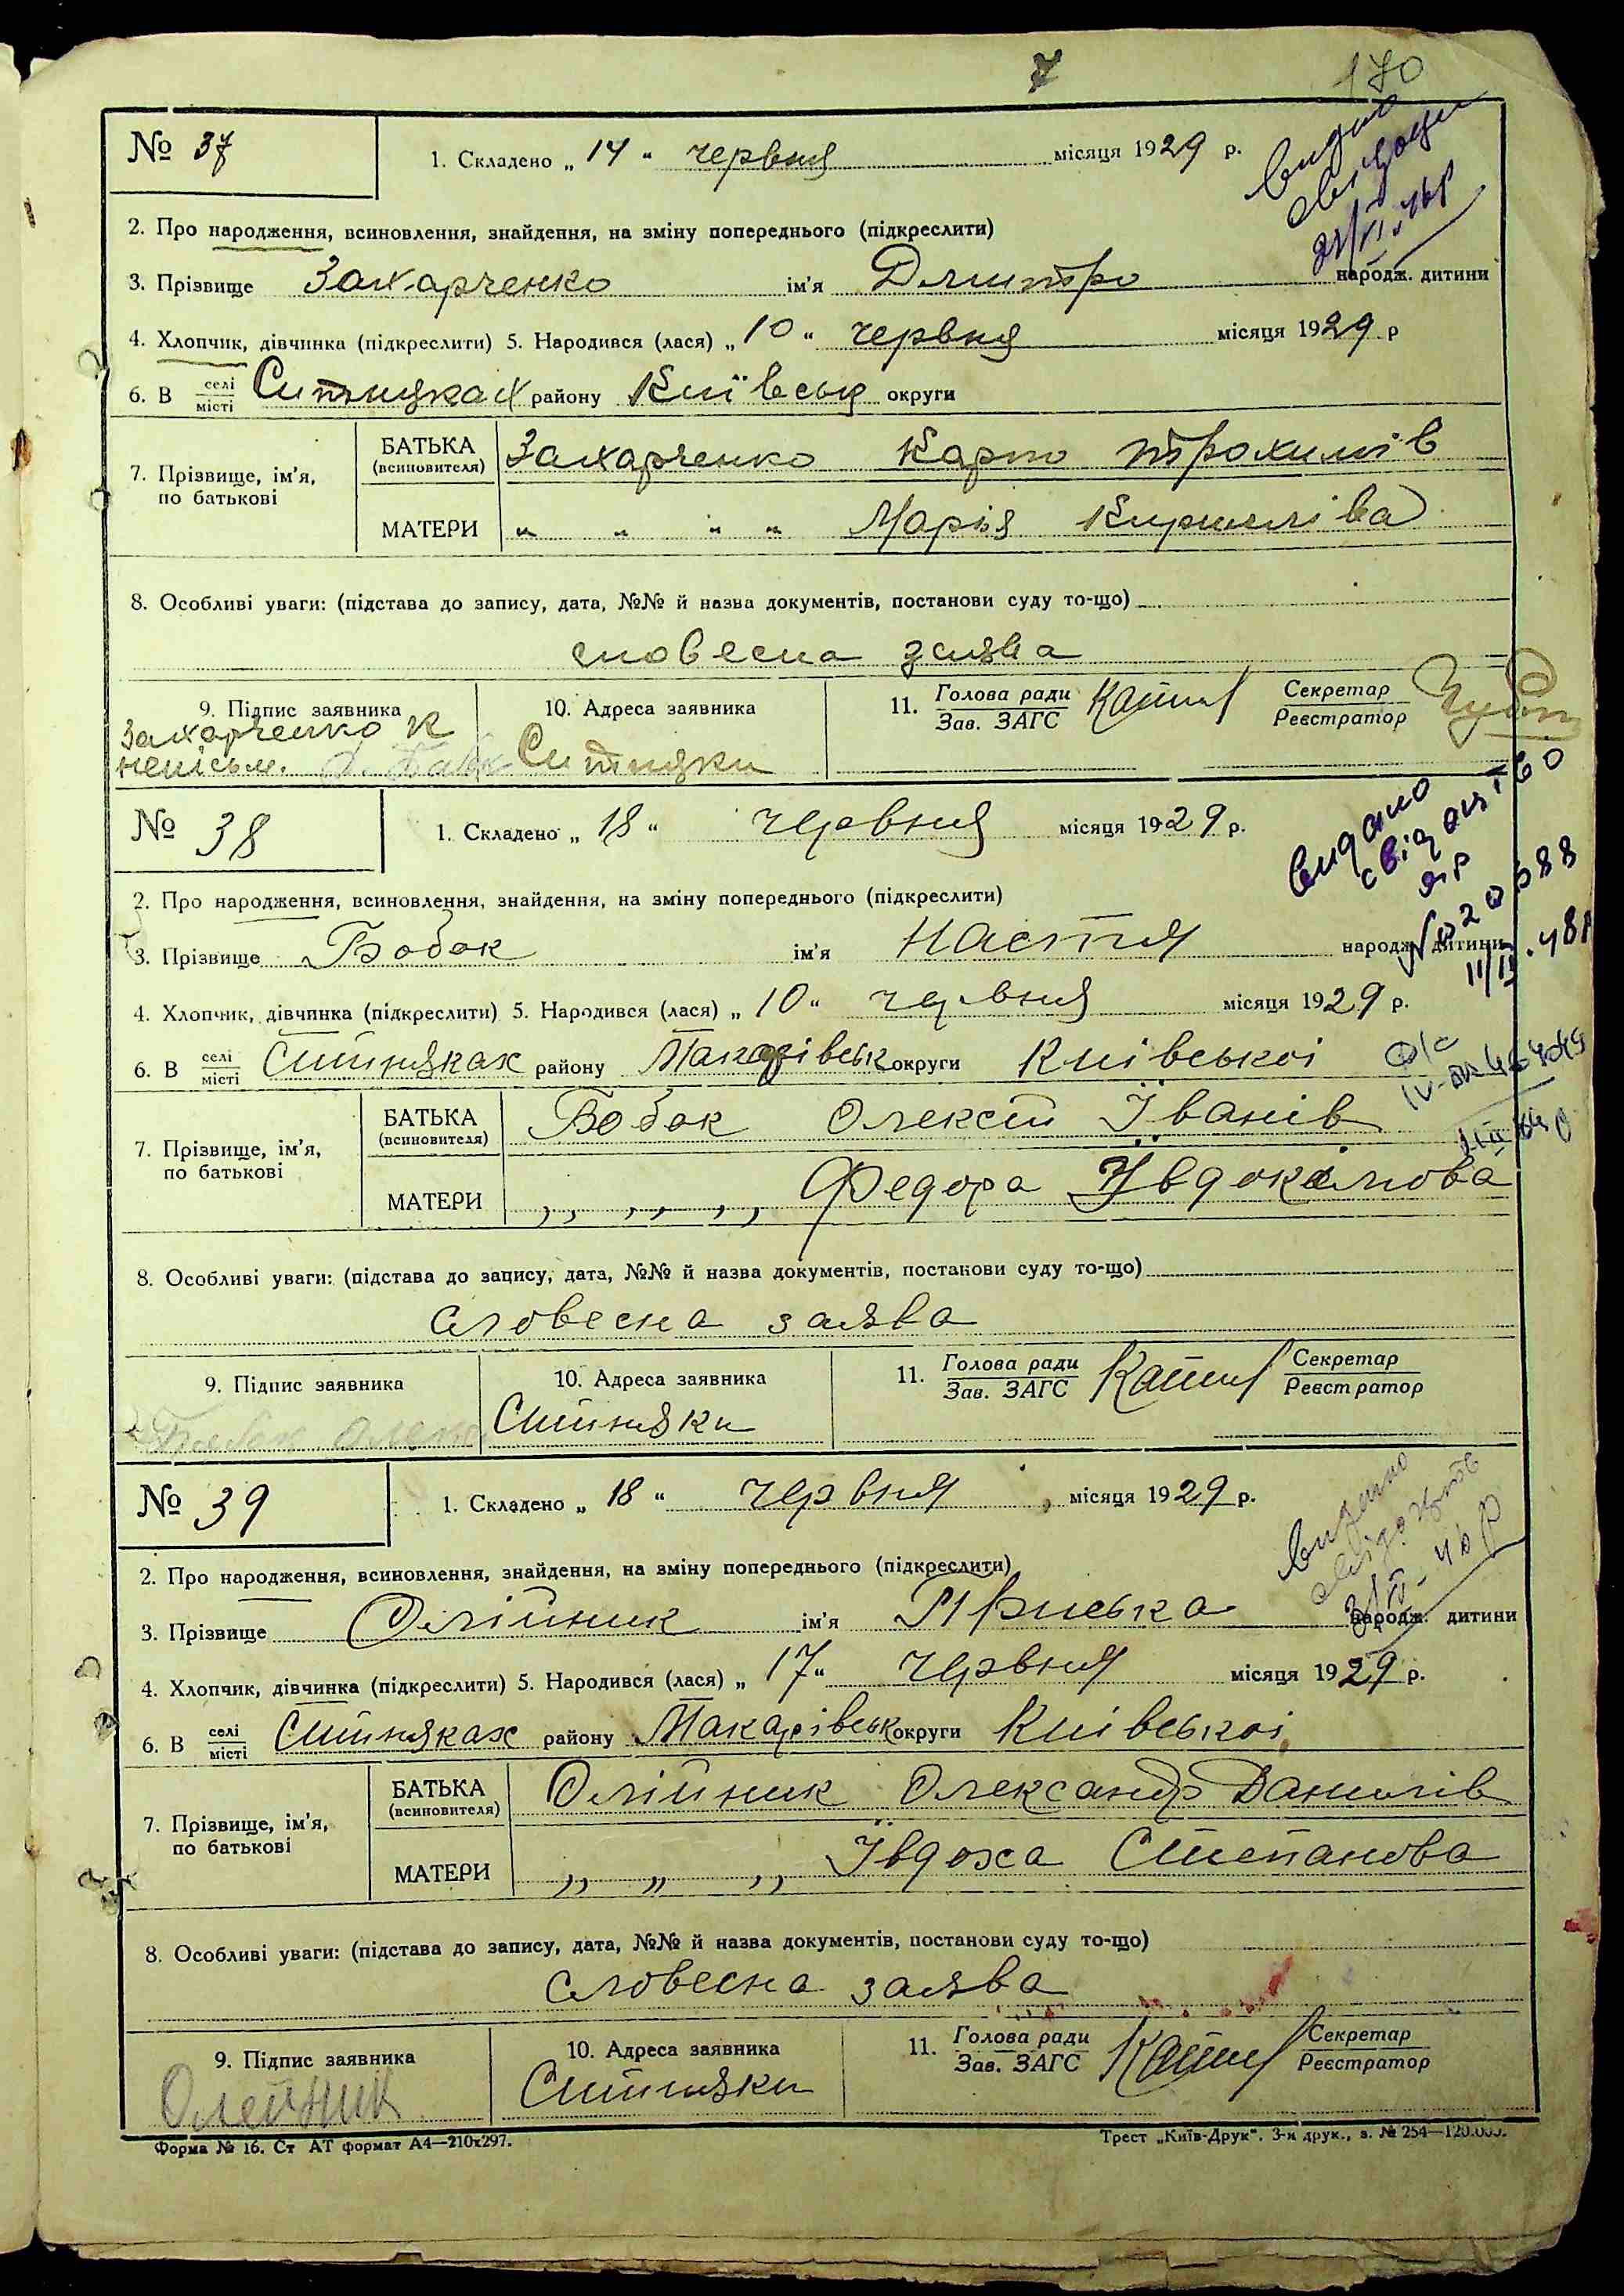 170
№ 37
1. Складено „ 14 “ червня місяця 1929 р.
2. Про народження, всиновлення, знайдення, на зміну попереднього (підкреслити)
3. Прізвище Захарченко ім'я Дмитро народж. дитини
4. Хлопчик, дівчинка (підкреслити) 5. Народився (лася) „ 10 “ червня місяця 1929 р
6. В селі місті Ситняках району Київськ округи
7. Прізвище, ім'я, по батькові
БАТЬКА (всиновителя) Захарченко Карпо Трохимів
МАТЕРИ „ „ „ „ Марія Кирилiва
8. Особливі уваги: (підстава до запису, дата, №№ й назва документів, постанови суду то-що)
словесна заява
9. Підпис заявника 10. Адреса заявника 11. Голова ради Зав. ЗАГС Секретар Реєстратор
Захарченко К
непісьм. Ситняки
№ 38
1. Складено „ 18 “ червня місяця 1929 р.
видано
свідоцтво
2. Про народження, всиновлення, знайдення, на зміну попереднього (підкреслити)
3. Прізвище Бобок ім'я Настя народж. дитини
4. Хлопчик, дівчинка (підкреслити) 5. Народився (лася) „ 10 “ червня місяця 1929 р.
6. В селі місті Ситняках району Макарівськ округи Київської
7. Прізвище, ім'я, по батькові
БАТЬКА (всиновителя) Бобок Олексій Іванів
МАТЕРИ „ „ „ Федора Ївдокімова
8. Особливі уваги: (підстава до запису, дата, №№ й назва документів, постанови суду то-що)
словесна заява
9. Підпис заявника 10. Адреса заявника 11. Голова ради Зав. ЗАГС Секретар Реєстратор
Ситняки
№ 39
1. Складено „ 18 “ червня місяця 1929 р.
видано
свідоцтв
2. Про народження, всиновлення, знайдення, на зміну попереднього (підкреслити)
3. Прізвище Олійник ім'я Приська народж. дитини
4. Хлопчик, дівчинка (підкреслити) 5. Народився (лася) „ 17 “ червня місяця 1929 р.
6. В селі місті Ситняках району Макарівськ округи Київської
7. Прізвище, ім'я, по батькові
БАТЬКА (всиновителя) Олійник Олександр Данилів
МАТЕРИ „ „ „ Ївдоха Степанова
8. Особливі уваги: (підстава до запису, дата, №№ й назва документів, постанови суду то-що)
словесна заява
9. Підпис заявника 10. Адреса заявника 11. Голова ради Зав. ЗАГС Секретар Реєстратор
Олейник Ситняки
Форма № 16. Ст АТ формат А4—210х297. Трест „Київ-Друк“. 3-я друк., з. № 254—120.000.